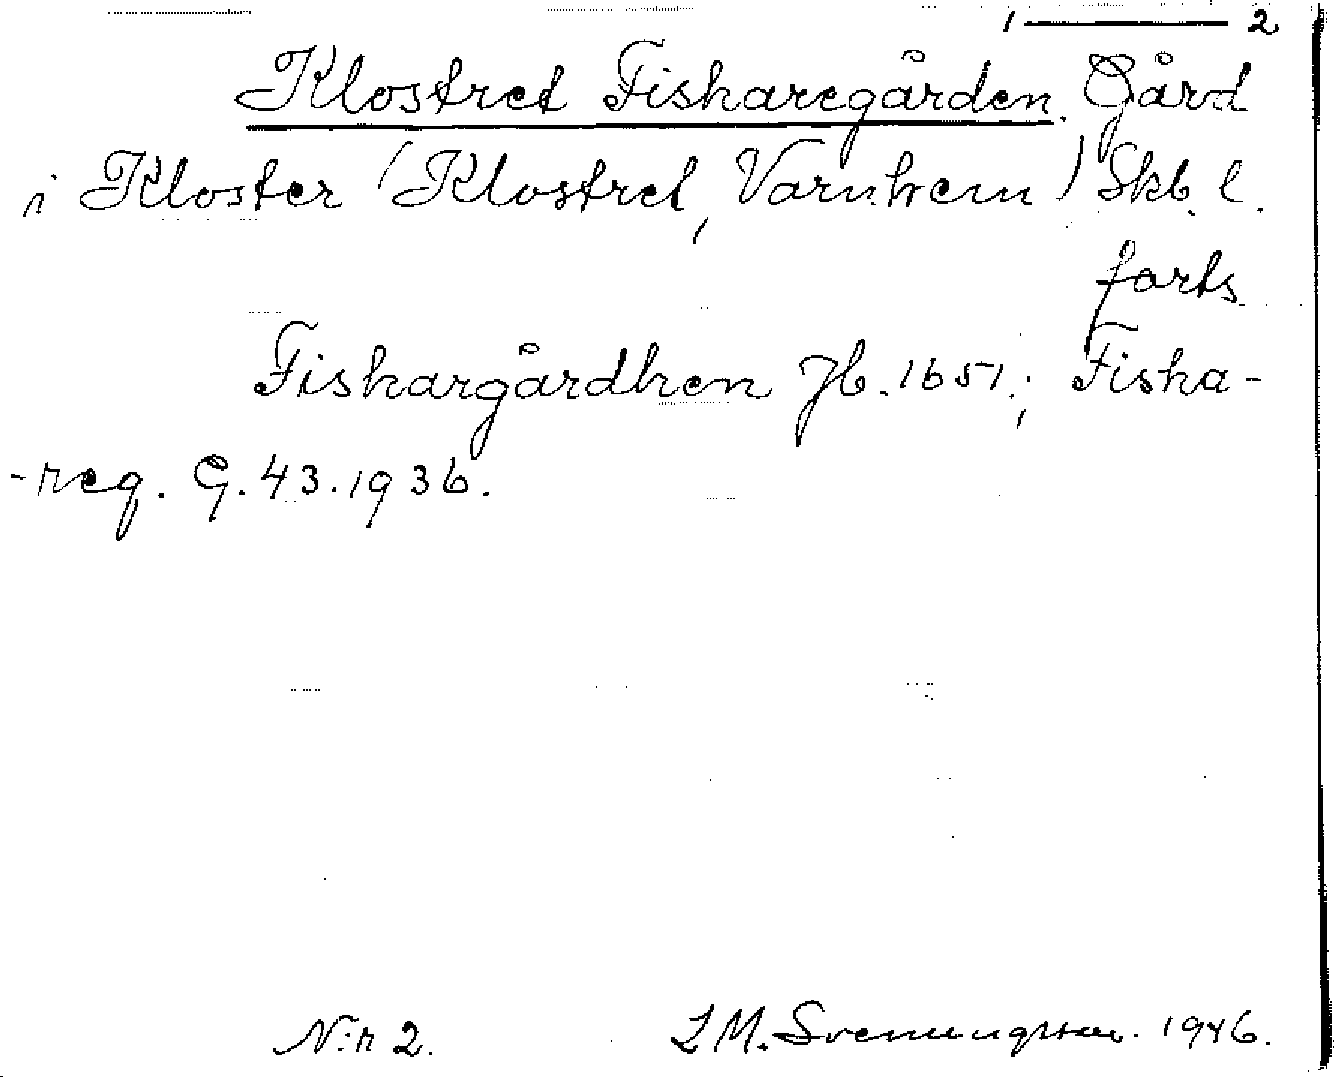 1 — 2
Klostret Fiskaregården. Gård
i Kloster (Klostret, Varnhem) Skb. l.
forts
Fiskargårdhen Jb. 1651.; Fiska-
-reg. G. 43. 1936.
N:r 2. L M. Svenungsson. 1946.